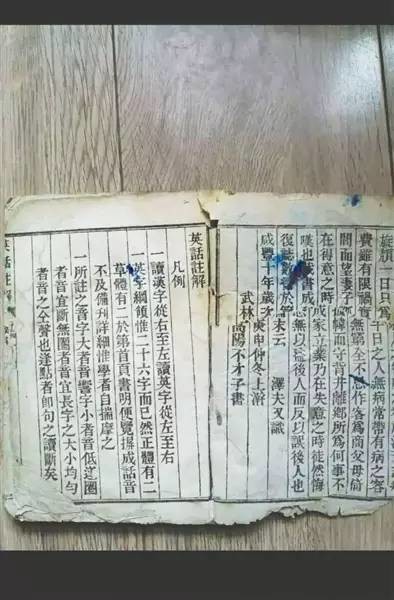 一日只爲千日之人無病常帶有病之容
費雖有限禍實無窮全不念作客爲商父母倚
門而望妻子倚幃而守背井離鄉所爲何事不
在得意之時成家立業乃在失意之時徒然悔
嘆也茲書成恐無以後人而反以誤後人也
復誌數於末云 澤夫又識
咸豐十年歲次庚申仲冬上澣
武林高陽不才子書
英話註解
凡例
一讀漢字從右至左讀英字從左至右
一英字綱領惟二十六字而已然正體有二
草體有二於第首頁書明便覽攢成話音
不及備刋詳細惟學者自揣摩之
一所註之音字大者音響字小者音低逆圈
者音宜斷無圈者音宜長字之大小均勻
者音之全聲也逢點者卽句之讀斷矣
英話註解